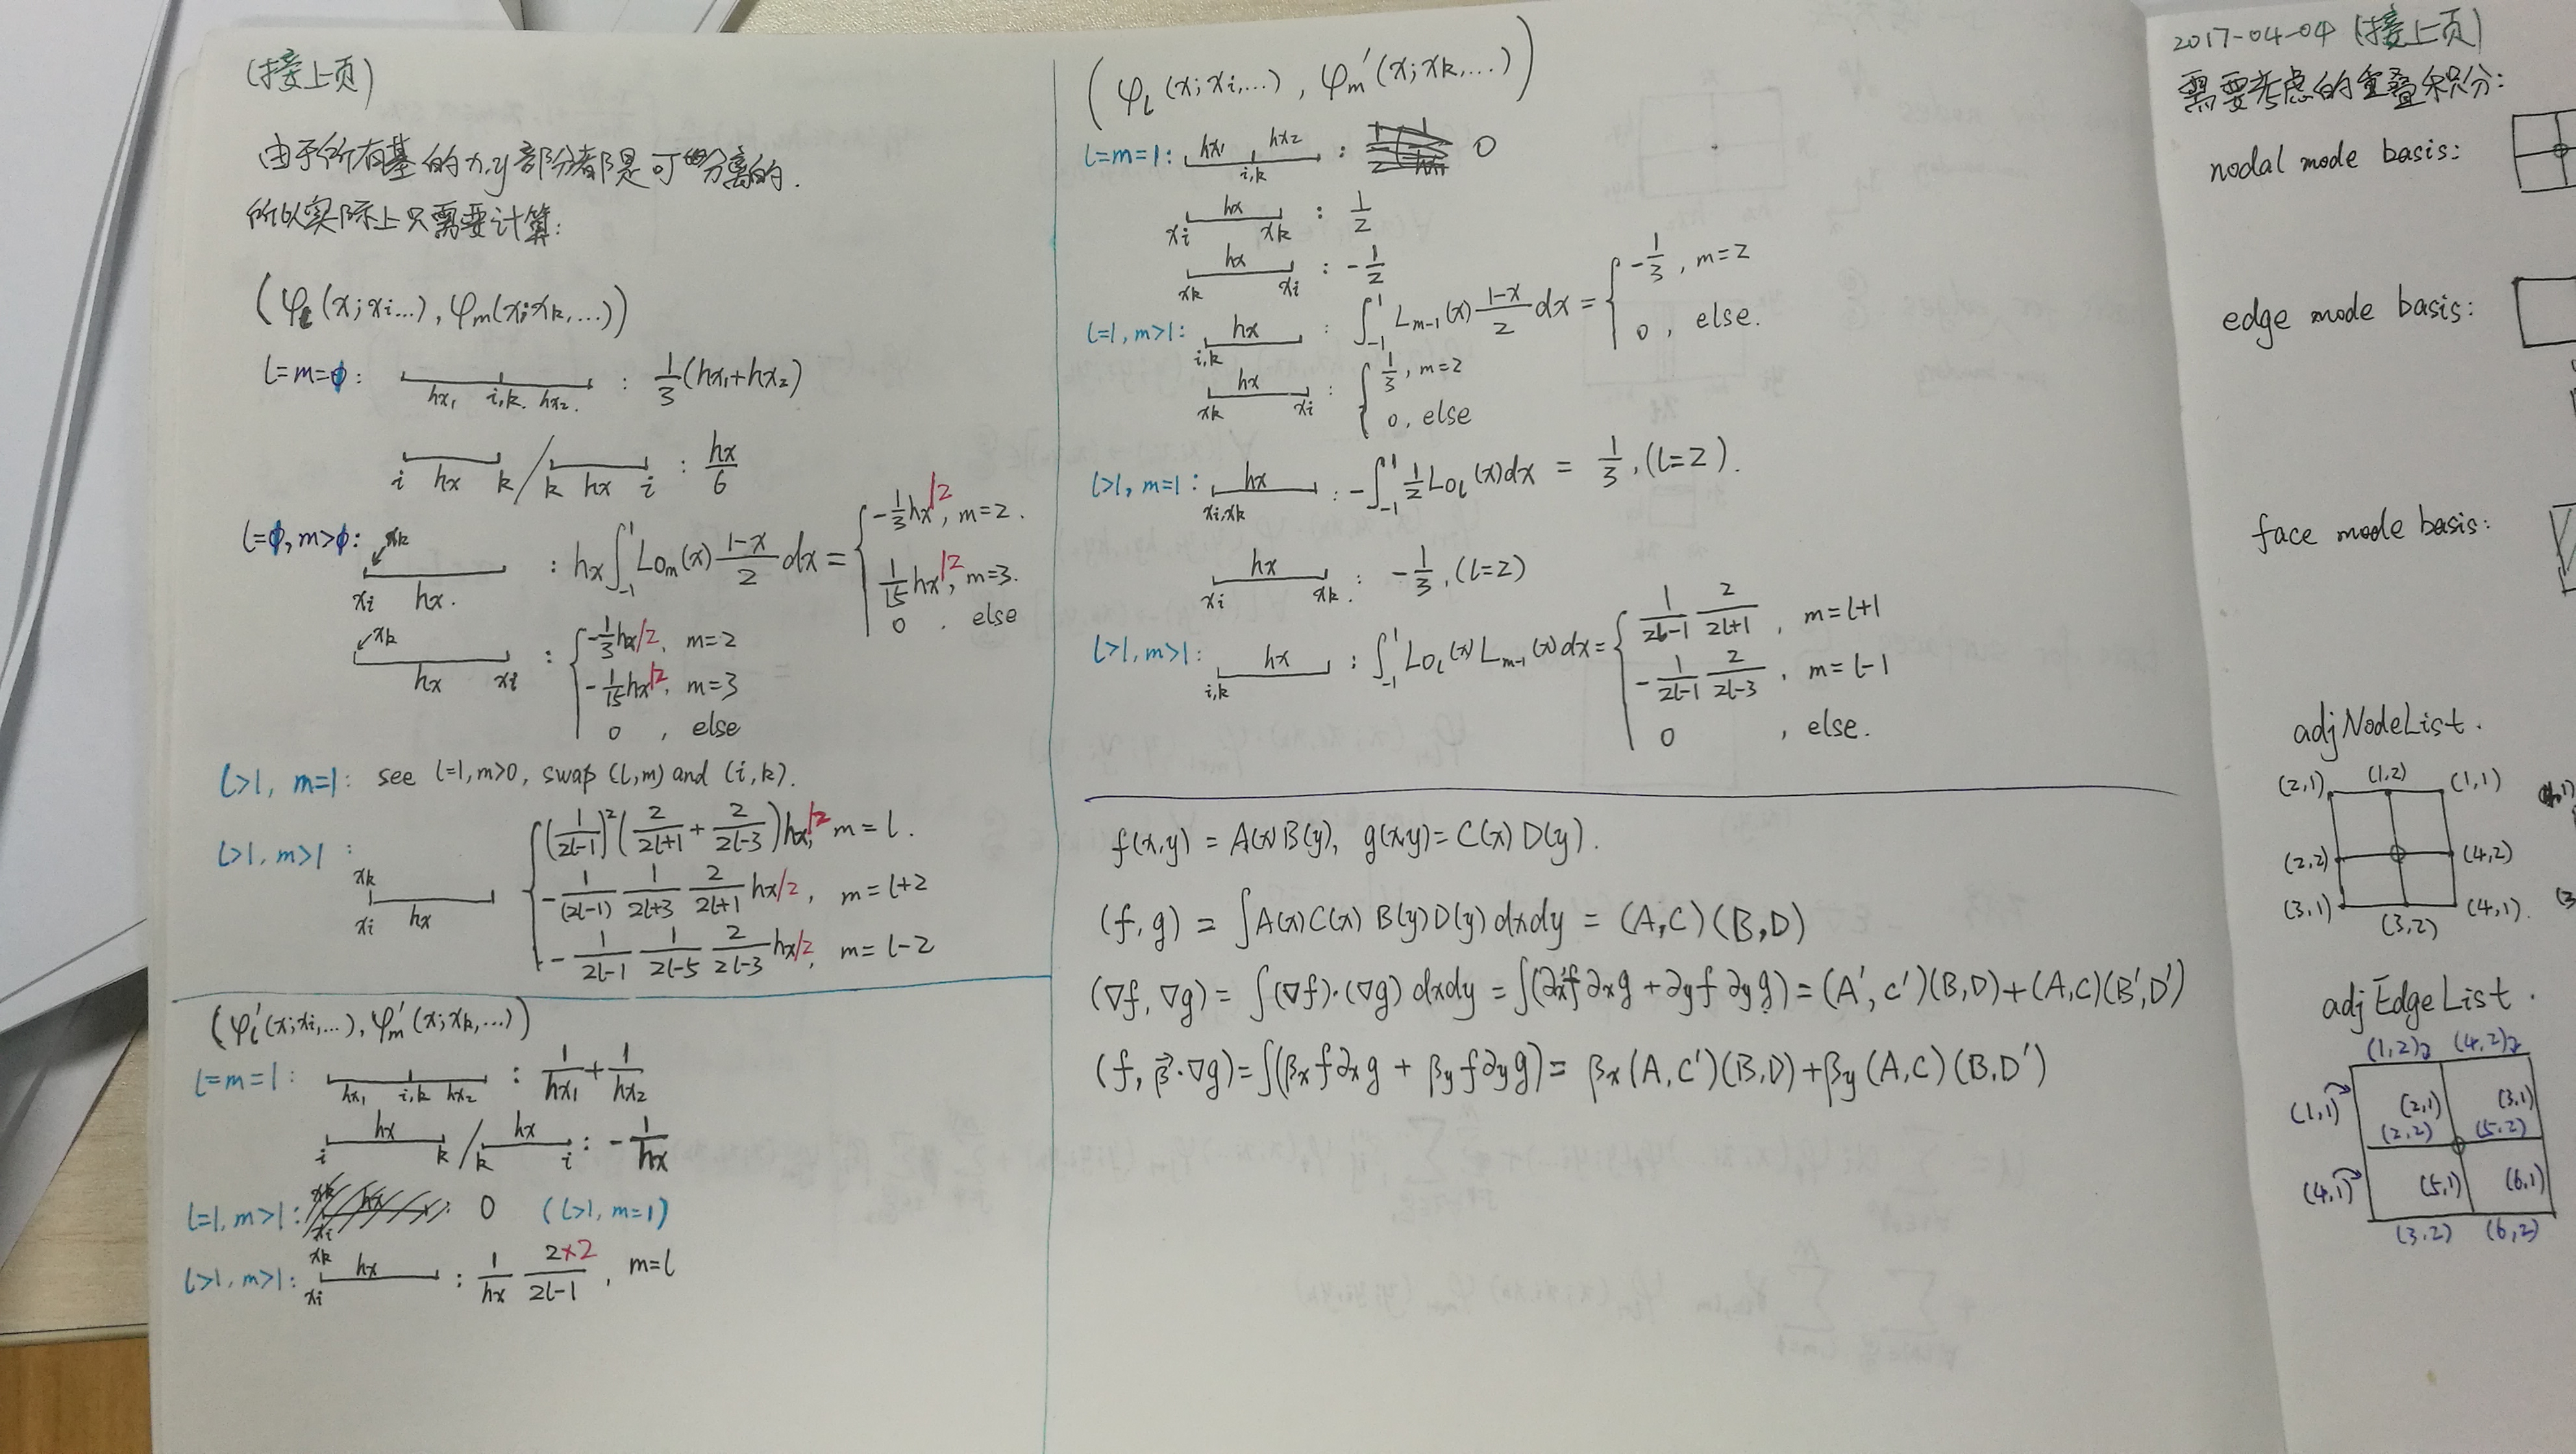 (接上页)
由于所有基的x,y部分都是可分离的.
所以实际上只需要计算:
(φl(x;xi...),φm(x;xk,...))
l=m=φ: hx1 i,k. hx2. : 1/3(hx1+hx2)
i hx k / k hx i : hx/6
l=φ,m>φ: xk xi hx. : hx∫_{-1}^{1} Lo_m(x) (1-x)/2 dx = { -1/3 hx/2, m=2.
1/15 hx/2, m=3.
0 , else
xk hx xi : { -1/3 hx/2, m=2
-1/15 hx/2, m=3
0 , else
l>1, m=1: see l=1,m>0, swap (l,m) and (i,k).
l>1, m>1 : xk xi hx { (1/(2l-1))²(2/(2l+1) + 2/(2l-3))hx/2, m=l.
-1/(2l-1) 1/(2l+3) 2/(2l+1) hx/2, m=l+2
-1/(2l-1) 1/(2l-5) 2/(2l-3) hx/2, m=l-2
(φl'(x;xi,...),φm'(x;xk,...))
l=m=1: hx1 i,k hx2 : 1/hx1+1/hx2
i hx k / k hx i : -1/hx
l=1,m>1: 0 (l>1,m=1)
l>1,m>1: xk xi hx : 1/hx 2×2/(2l-1), m=l
(φl(x;xi,...), φm'(x;xk,...))
l=m=1: hx1 hx2 i,k : 0
xi hx xk : 1/2
xk hx xi : -1/2
l=1,m>1: i,k hx : ∫_{-1}^{1} L_{m-1}(x) (1-x)/2 dx = { -1/3, m=2
0, else.
xk hx xi : { 1/3, m=2
0, else
l>1, m=1: hx xi,xk : -∫_{-1}^{1} 1/2 Lo_l(x)dx = 1/3,(l=2).
xi hx xk. : -1/3,(l=2)
l>1,m>1: i,k hx : ∫_{-1}^{1} Lo_l(x) L_{m-1}(x)dx= { 1/(2l-1) 2/(2l+1), m=l+1
-1/(2l-1) 2/(2l-3), m=l-1
0 , else.
f(x,y) = A(x)B(y), g(x,y)=C(x)D(y).
(f,g) = ∫A(x)C(x) B(y)D(y) dxdy = (A,C)(B,D)
(∇f,∇g)= ∫(∇f)·(∇g) dxdy = ∫(∂xf ∂xg +∂yf ∂yg)=(A',C')(B,D)+(A,C)(B',D')
(f,β⃗·∇g)=∫(βx f∂xg + βy f∂yg)= βx(A,C')(B,D)+βy(A,C)(B,D')
2017-04-04 (接上页)
需要考虑的重叠积分:
nodal mode basis:
edge mode basis:
face mode basis:
adjNodeList.
(2,1) (1,2) (1,1)
(2,2) (4,2)
(3,1) (3,2) (4,1).
adjEdgeList.
(1,2) (4,2)
(1,1) (2,1) (3,1)
(2,2) (5,2)
(4,1) (5,1) (6,1)
(3,2) (6,2)